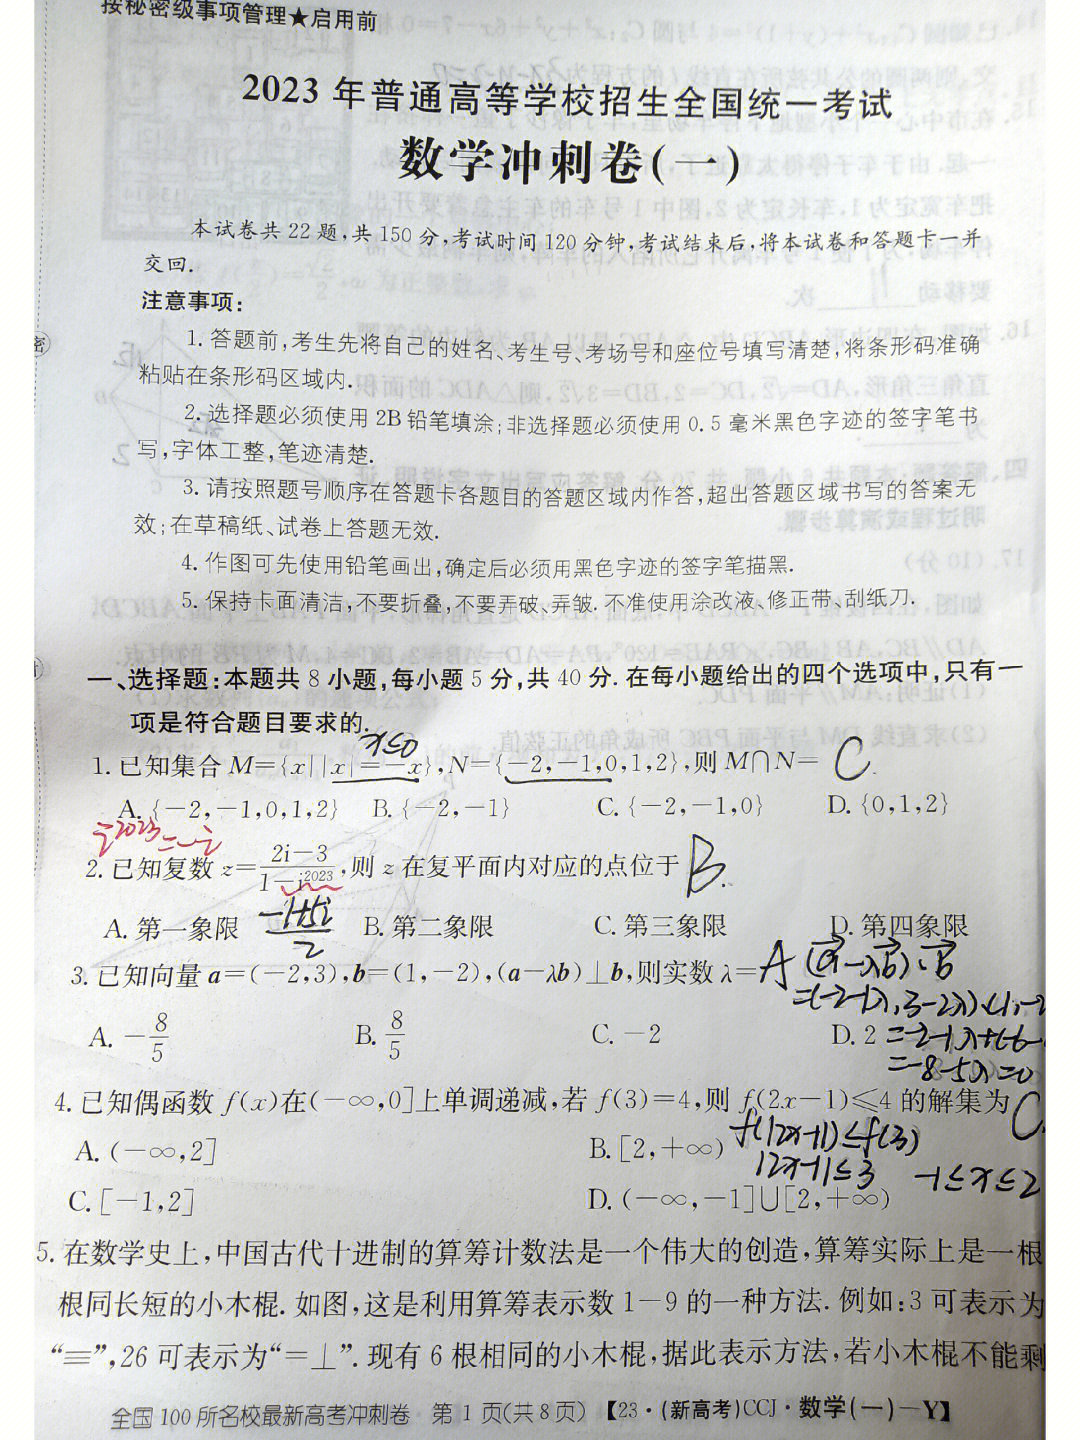 按秘密级事项管理★启用前
2023年普通高等学校招生全国统一考试
数学冲刺卷(一)
本试卷共22题,共150分,考试时间120分钟,考试结束后,将本试卷和答题卡一并
交回.
注意事项:
1.答题前,考生先将自己的姓名、考生号、考场号和座位号填写清楚,将条形码准确
粘贴在条形码区域内.
2.选择题必须使用2B铅笔填涂;非选择题必须使用0.5毫米黑色字迹的签字笔书
写,字体工整,笔迹清楚.
3.请按照题号顺序在答题卡各题目的答题区域内作答,超出答题区域书写的答案无
效;在草稿纸、试卷上答题无效.
4.作图可先使用铅笔画出,确定后必须用黑色字迹的签字笔描黑.
5.保持卡面清洁,不要折叠,不要弄破、弄皱.不准使用涂改液、修正带,刮纸刀.
一、选择题:本题共8小题,每小题5分,共40分.在每小题给出的四个选项中,只有一
项是符合题目要求的.
x≤0
1.已知集合M={x||x|=-x},N={-2,-1,0,1,2},则M∩N= C
A.{-2,-1,0,1,2} B.{-2,-1} C.{-2,-1,0} D.{0,1,2}
i²⁰²³=-i
2.已知复数z=(2i-3)/(1-i²⁰²³),则z在复平面内对应的点位于 B.
A.第一象限 B.第二象限 C.第三象限 D.第四象限
(-1+5i)/2
3.已知向量a=(-2,3),b=(1,-2),(a-λb)⊥b,则实数λ= A (a-λb)·b
=(-2-1λ,3-2λ)·(1,-2
A.-8/5 B.8/5 C.-2 D.2
=-2-1λ+(-6-
=-8-5λ=0
4.已知偶函数f(x)在(-∞,0]上单调递减,若f(3)=4,则f(2x-1)≤4的解集为 C.
A.(-∞,2] B.[2,+∞)
f(|2x-1|)≤f(3)
|2x-1|≤3 -1≤x≤2
C.[-1,2] D.(-∞,-1]∪[2,+∞)
5.在数学史上,中国古代十进制的算筹计数法是一个伟大的创造,算筹实际上是一根
根同长短的小木棍.如图,这是利用算筹表示数1-9的一种方法.例如:3可表示为
“≡”,26可表示为“=⊥”.现有6根相同的小木棍,据此表示方法,若小木棍不能剩
全国100所名校最新高考冲刺卷 第1页(共8页) 【23·(新高考)CCJ·数学(一)-Y】